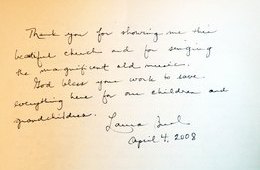 Thank you for showing me this
beautiful church and for singing
the magnificent old music.
God bless your work to save
everything here for our children and
grandchildren.
Laura
April 4, 2008